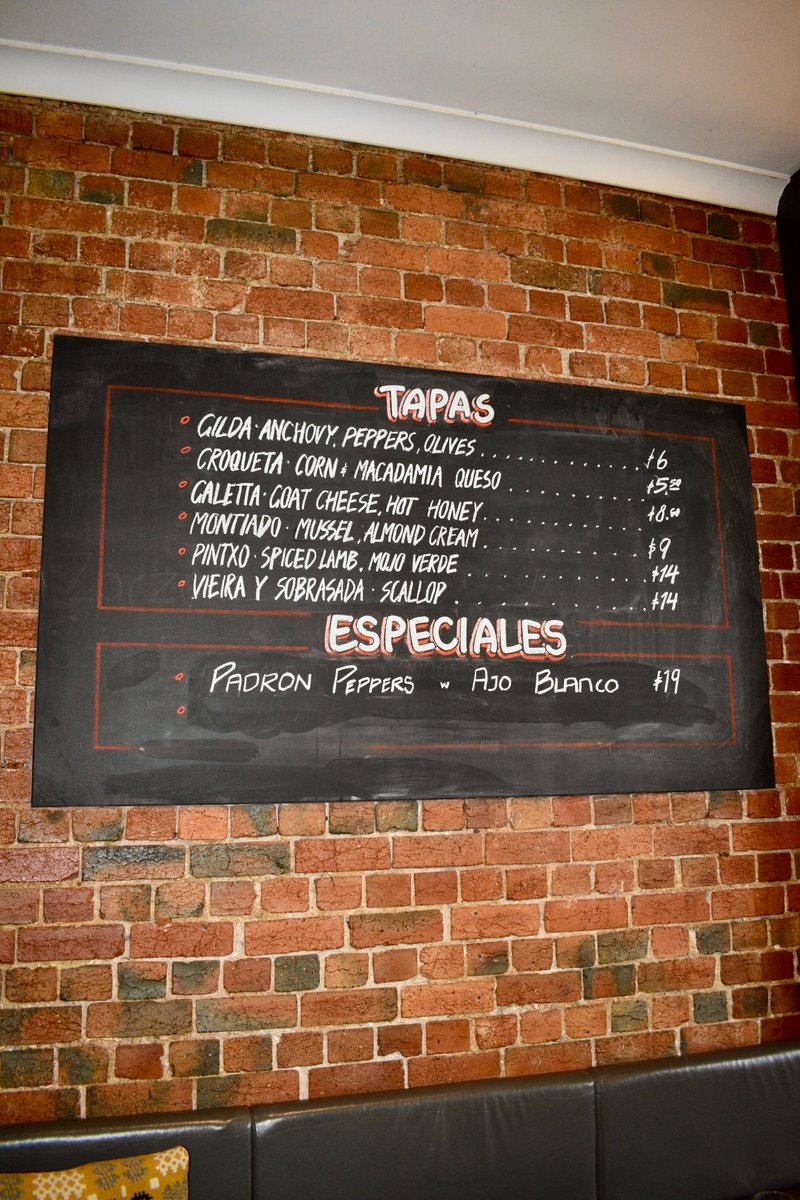 TAPAS
GILDA · ANCHOVY, PEPPERS, OLIVES . . . . . . . . . . . . . $6
CROQUETA · CORN & MACADAMIA QUESO . . . . . . . . . . . $5.50
GALETTA · GOAT CHEESE, HOT HONEY . . . . . . . . . . . . $8.50
MONTIADO · MUSSEL, ALMOND CREAM . . . . . . . . . . . . $9
PINTXO · SPICED LAMB, MOJO VERDE . . . . . . . . . . . . . $14
VIEIRA Y SOBRASADA · SCALLOP . . . . . . . . . . . . . $14
ESPECIALES
PADRON PEPPERS w AJO BLANCO $19